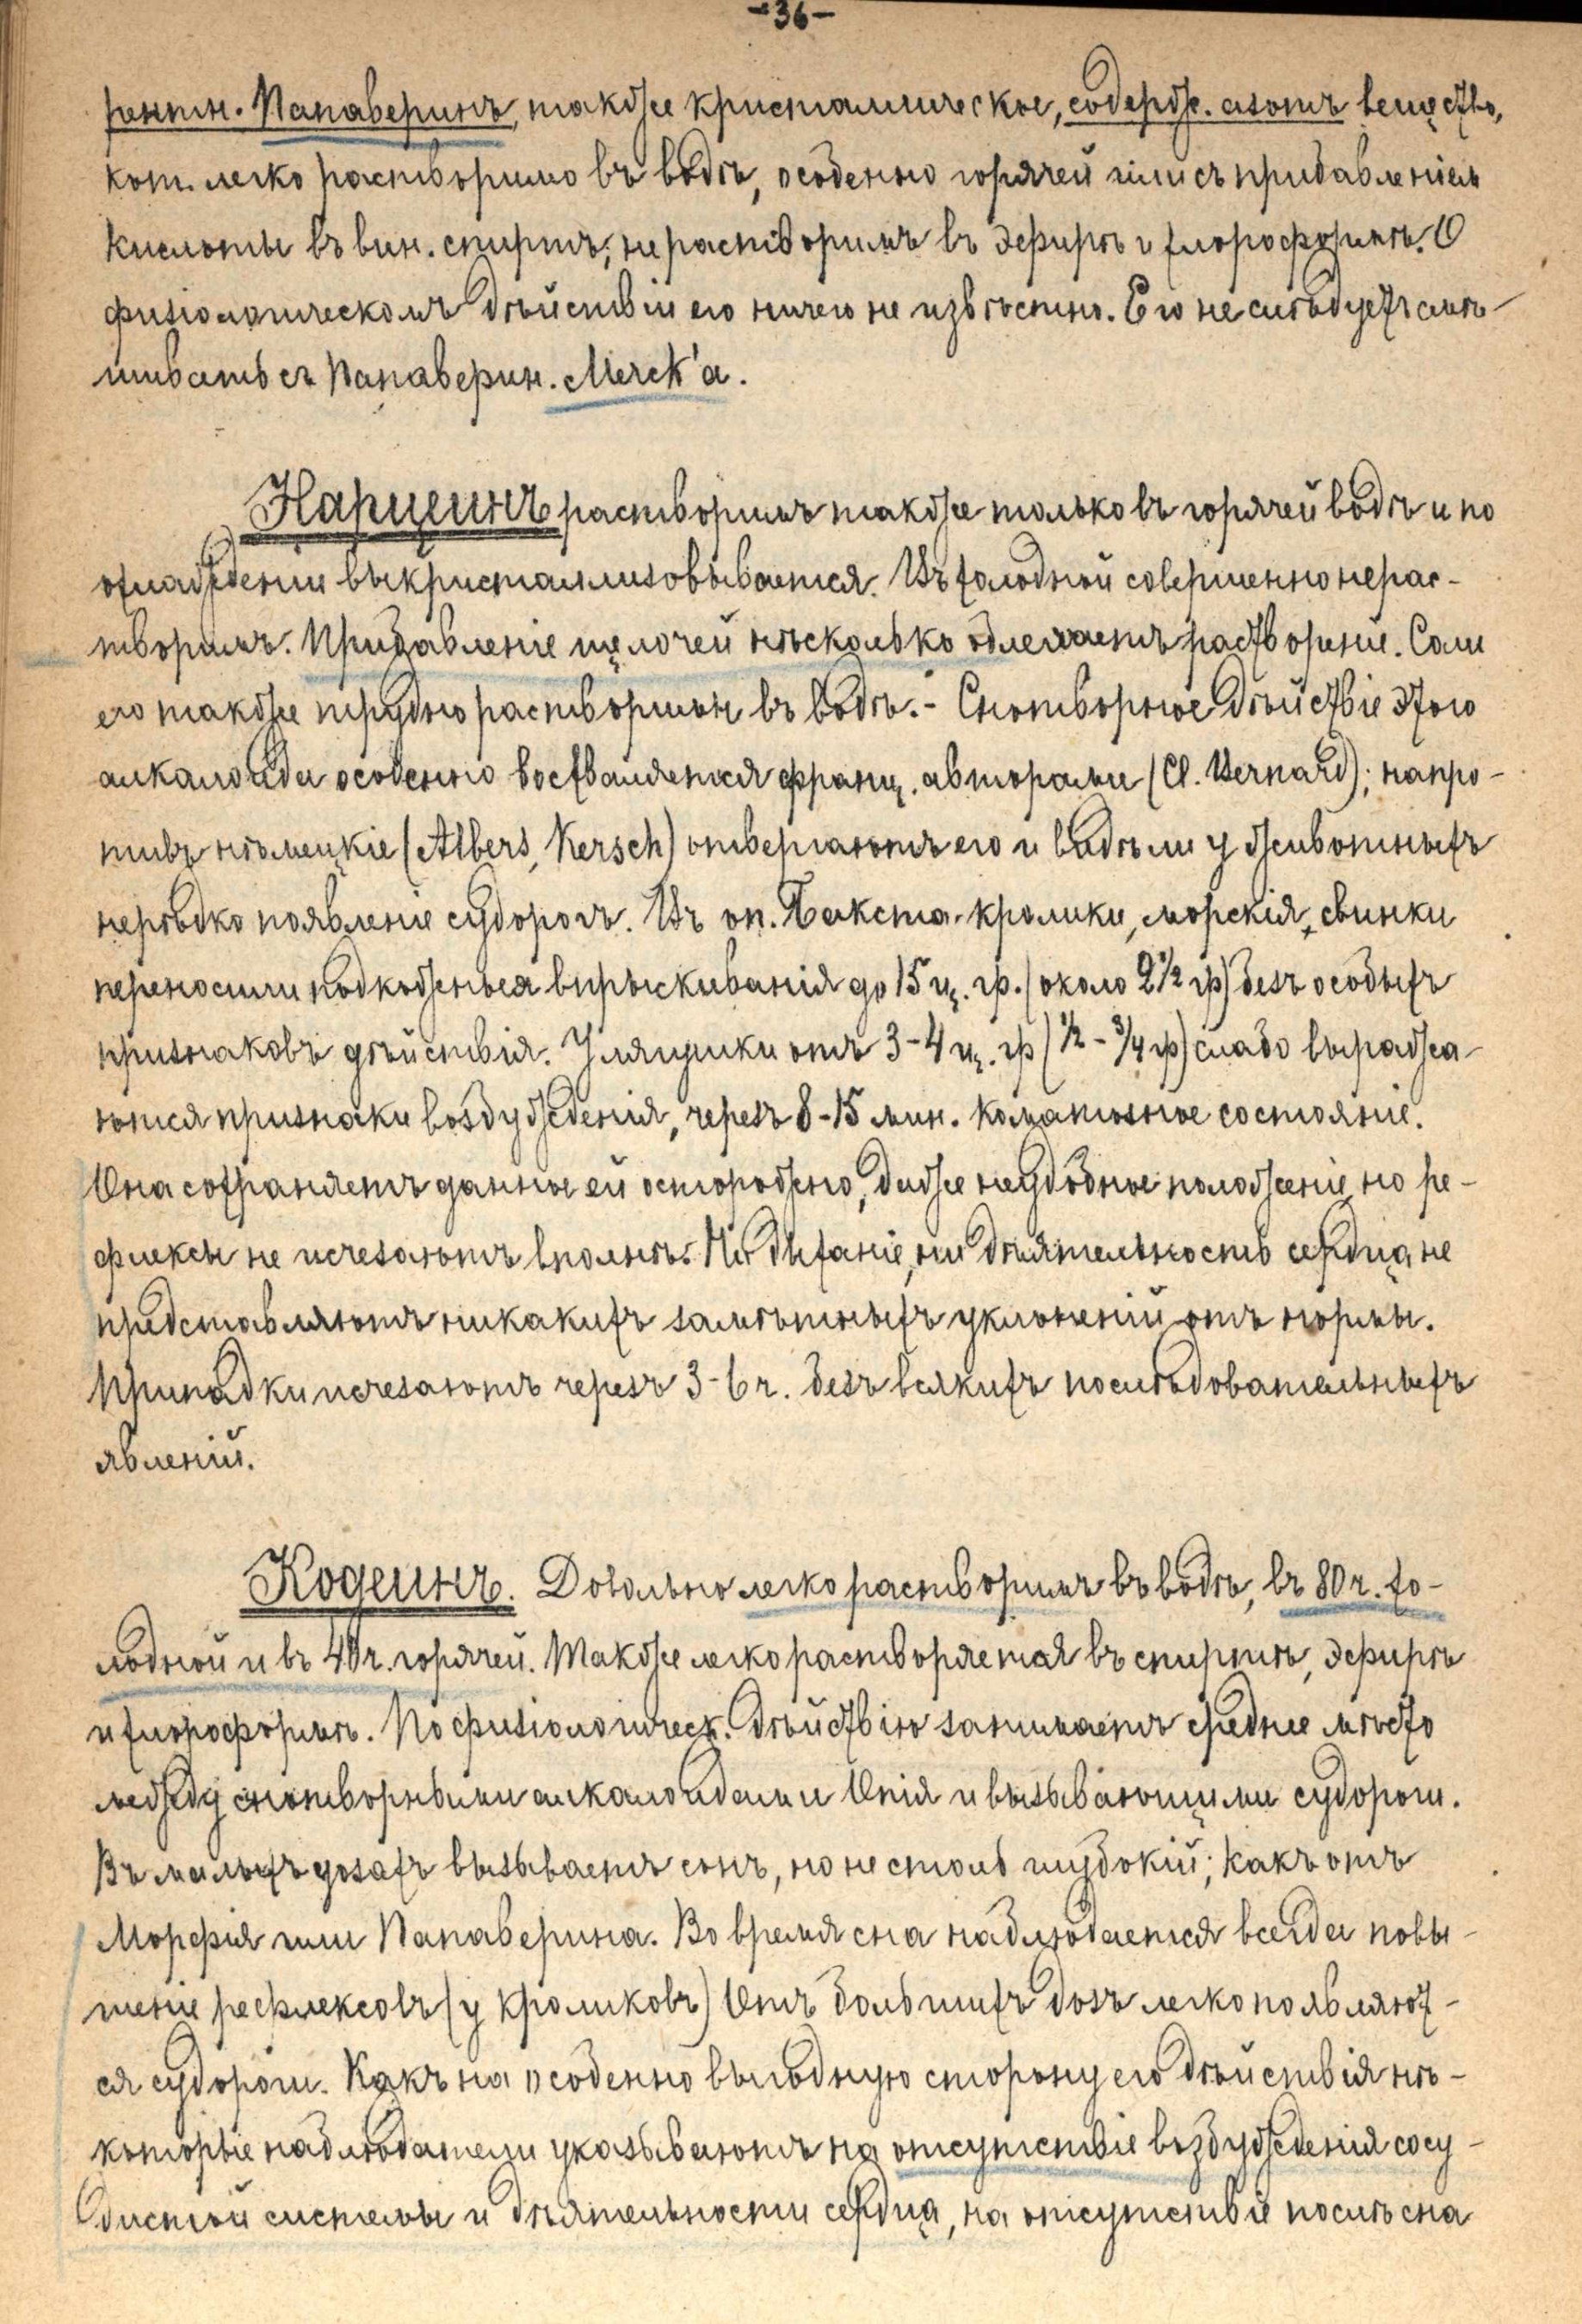 -36-
рентн. Папаверинъ, также кристаллическое, содерж. азотъ вещество,
кот. легко растворимо въ водѣ, особенно горячей или съ придавленіем
кислоты въ вин. спиртѣ; не растворимъ въ эфирѣ и хлороформѣ. О
физіологическомъ дѣйствіи его ничего не извѣстно. Его не слѣдуетъ смѣ-
шивать съ Папаверин. Merck'а.
Нарцеинъ растворимъ также только въ горячей водѣ и по
охлажденіи выкристаллизовывается. Въ холодной совершенно нерас-
творимъ. Придавленіе щелочей нѣсколько облегчаетъ растворенie. Соли
его также трудно растворимы въ водѣ. - Снотворное дѣйствіе этого
алкалоида особенно восхваляется франц. авторами (Cl. Bernard); напро-
тивъ нѣмецкіе (Albers, Kersch) отвергаютъ его и видѣли у животныхъ
нерѣдко появленіе судорогъ. Въ оп. Бакста кролики, морскія свинки
переносили подкожныя впрыскиванія до 15 ц. гр. (около 2½ гр) безъ особыхъ
признаковъ дѣйствія. У лягушки отъ 3-4 ц. гр (½ - ¾ гр) слабо выража-
ются признаки возбужденія, через 8-15 мин. коматозное состояніе.
Она сохраняетъ данное ей осторожно, даже неудобное положеніе, но ре-
флексы не исчезаютъ вполнѣ. Ни дыханіе, ни дѣятельность сердца не
представляютъ никакихъ замѣтныхъ уклоненій отъ нормы.
Припадки исчезаютъ черезъ 3-6 ч. безъ всякихъ послѣдовательныхъ
явленій.
Кодеинъ. Довольно легко растворимъ въ водѣ, въ 80 ч. хо-
лодной и въ 40 ч. горячей. Также легко растворяется въ спиртѣ, эфирѣ
и хлороформѣ. По физіологическ. дѣйствію занимаетъ среднее мѣсто
между снотворными алкалоидами Опія и вызывающими судороги.
Въ малыхъ дозахъ вызываетъ сонъ, но не столь глубокій, какъ отъ
Морфія или Папаверина. Во время сна наблюдается всегда повы-
шеніе рефлексовъ (у кроликовъ) Отъ большихъ дозъ легко появляют-
ся судороги. Какъ на особенно выгодную сторону его дѣйствія нѣ-
которые наблюдатели указываютъ на отсутствіе возбужденія сосу-
дистой системы и дѣятельности сердца, на отсутствіе послѣ сна